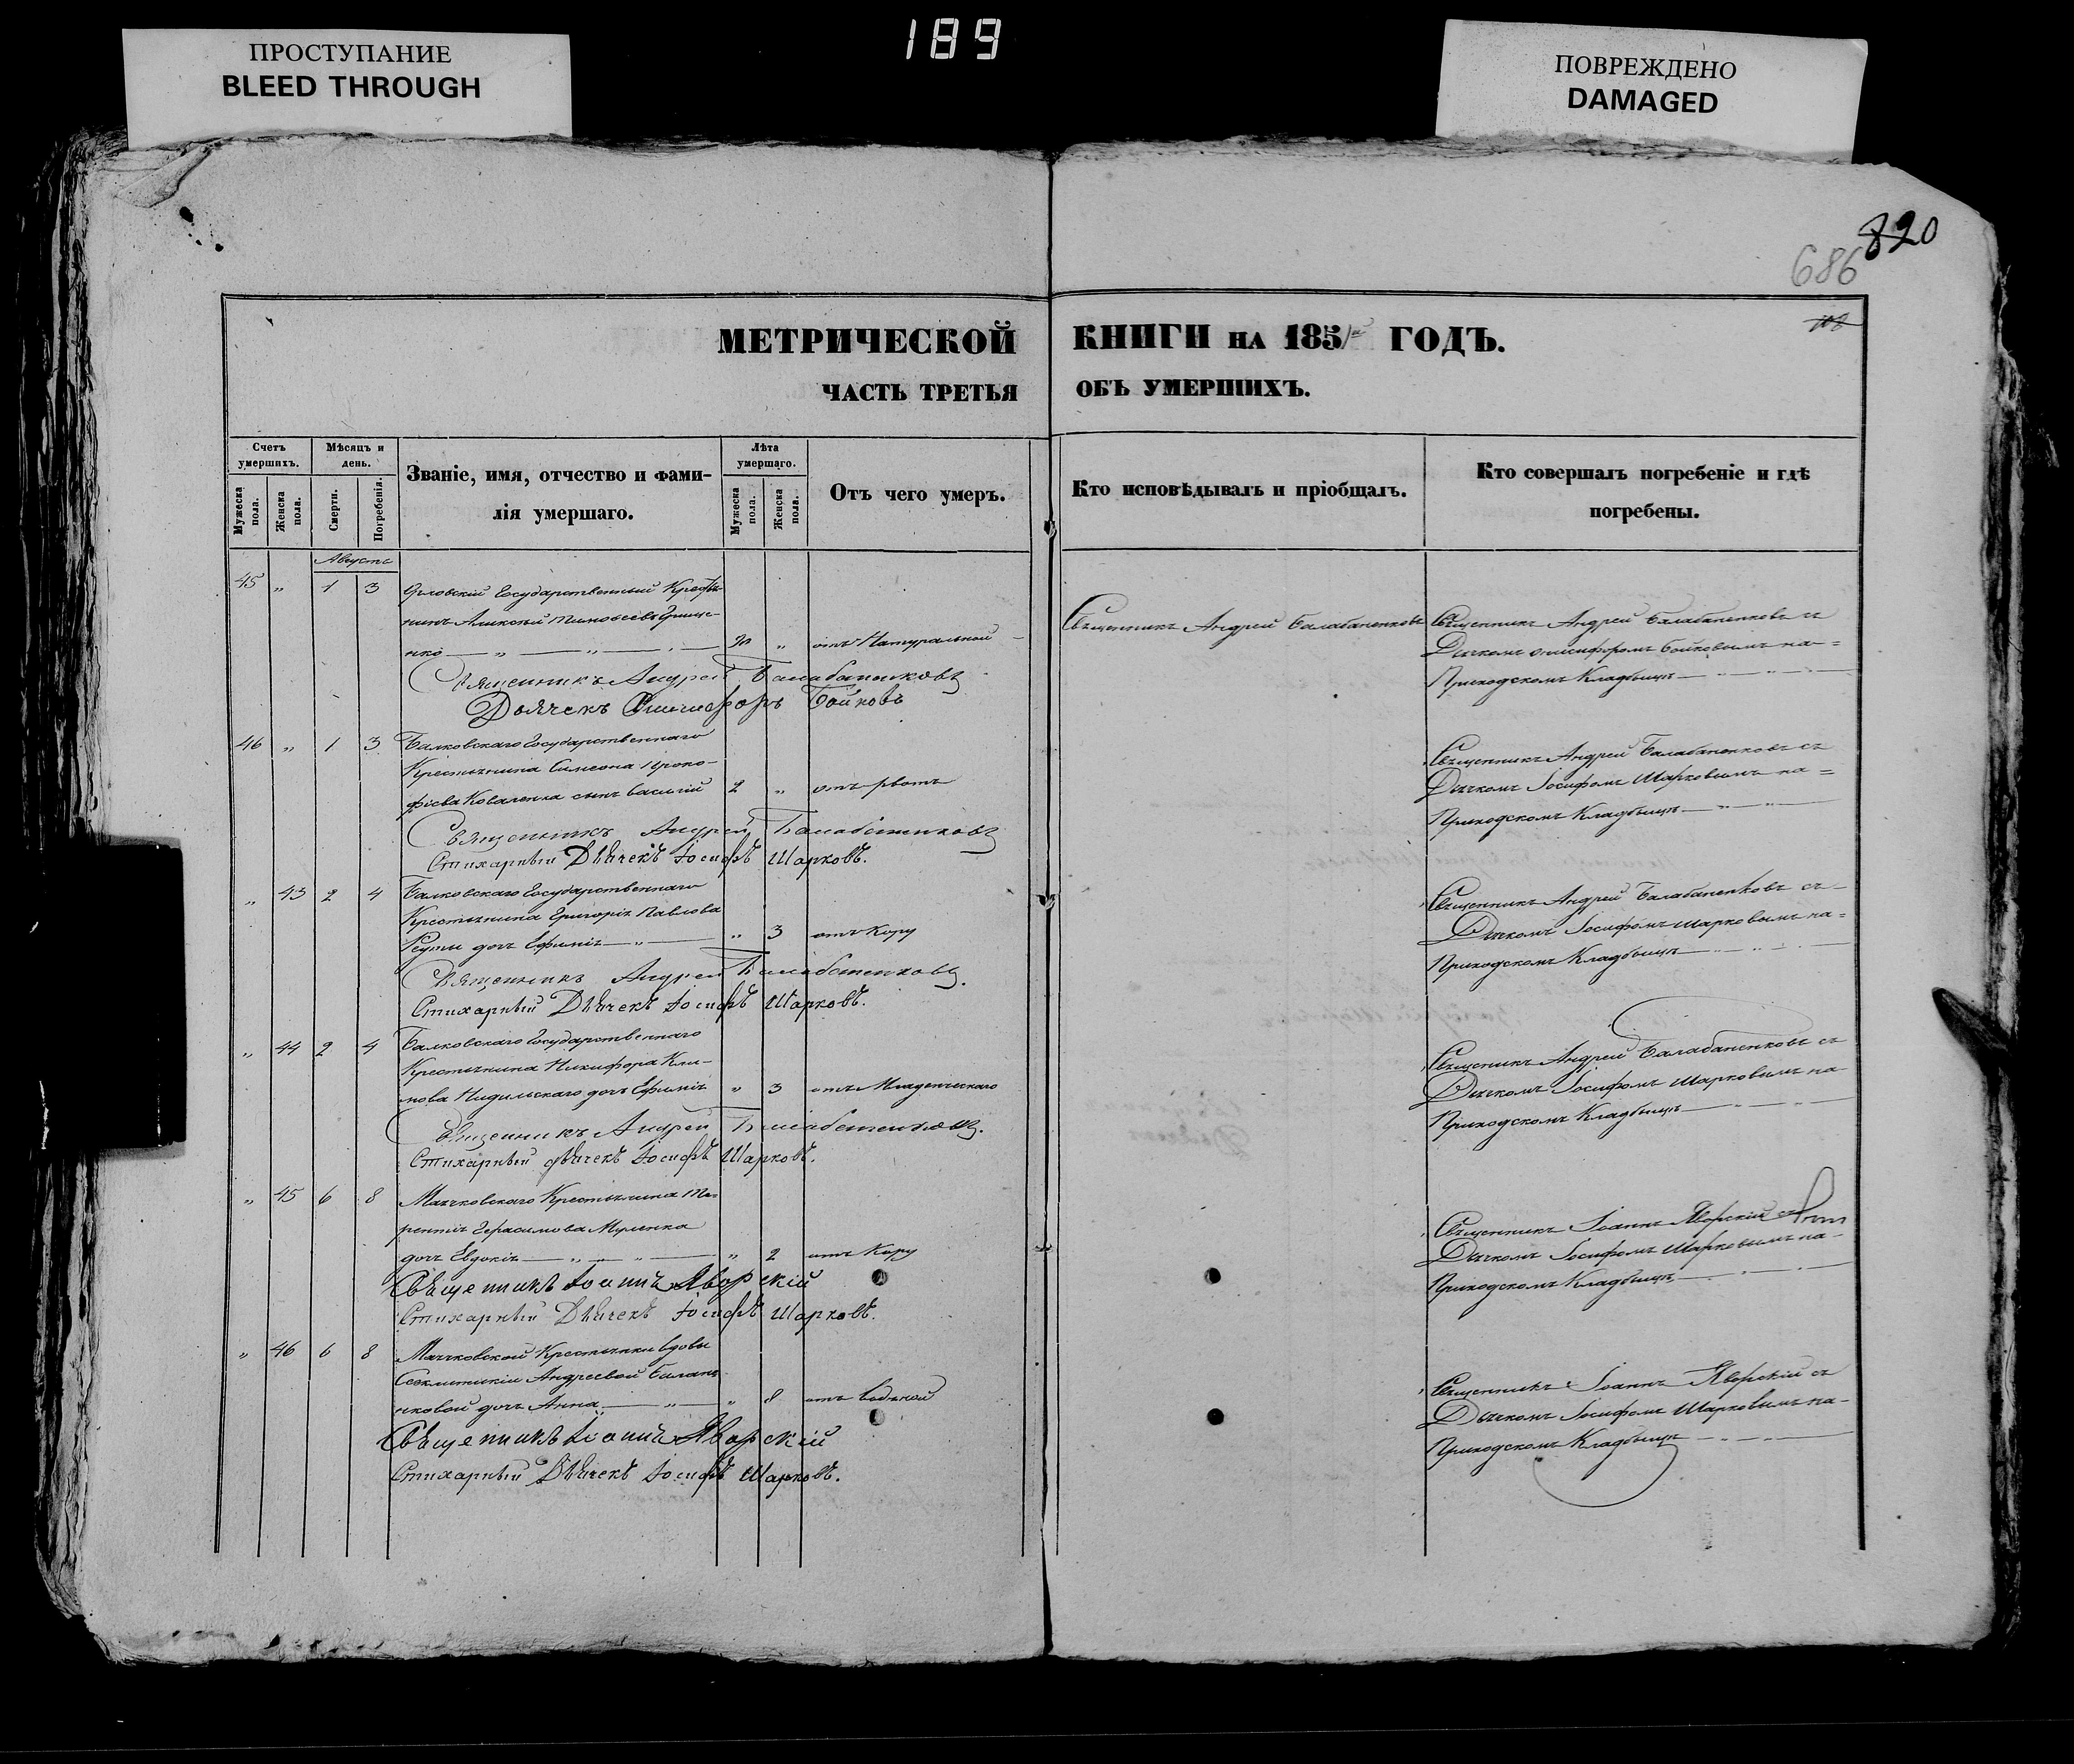 189
ПРОСТУПАНИЕ
BLEED THROUGH
ПОВРЕЖДЕНО
DAMAGED
820
686
МЕТРИЧЕСКОЙ КНИГИ НА 1851 ГОДЪ.
ЧАСТЬ ТРЕТЬЯ ОБЪ УМЕРШИХЪ.
Счетъ умершихъ.
Мужеска пола.
Женска пола.
Мѣсяцъ и день.
Смерти.
Погребенія.
Званіе, имя, отчество и фамилія умершаго.
Лѣта умершаго.
Мужеска пола.
Женска пола.
Отъ чего умеръ.
Кто исповѣдывалъ и пріобщалъ.
Кто совершалъ погребеніе и гдѣ погребены.
Августъ
45 „ 1 3 Государственный Крестья-
нинъ Алексѣй Тимоѳеевъ
„ отъ Натуральной
Священникъ Андрей Балабаненковъ
Священникъ Андрей Балабаненковъ съ
Дьячкомъ Онисифоромъ Бойковымъ на=
Приходскомъ Кладбищѣ
Священникъ Андрей Балабаненковъ
Дьячекъ Онисифоръ Бойковъ
46 „ 1 3 Балковскаго Государственнаго
Крестьянина Симеона Проко-
фіева Коваленка сынъ Василій 2 „ отъ рвоты
Священникъ Андрей Балабаненковъ съ
Дьячкомъ Іосифомъ Шарковымъ на=
Приходскомъ Кладбищѣ
Священникъ Андрей Балабаненковъ
Стихарный Дьячекъ Іосифъ Шарковъ.
„ 43 2 4 Балковскаго Государственнаго
Крестьянина Григорія Павлова
Реуты дочь Ефимія „ 3 отъ Кору
Священникъ Андрей Балабаненковъ съ
Дьячкомъ Іосифомъ Шарковымъ на=
Приходскомъ Кладбищѣ
Священникъ Андрей Балабаненковъ.
Стихарный Дьячекъ Іосифъ Шарковъ.
„ 44 2 4 Балковскаго Государственнаго
Крестьянина Никифора Кли-
мова дочь Ефимія „ 3 отъ Младенческаго
Священникъ Андрей Балабаненковъ съ
Дьячкомъ Іосифомъ Шарковымъ на
Приходскомъ Кладбищѣ
Священникъ Андрей Балабаненковъ.
Стихарный дьячекъ Іосифъ Шарковъ.
„ 45 6 8 Маячковскаго Крестьянина Те-
рентія Герасимова Муленка
дочь Евдокія „ 2 отъ Кору
Священникъ Іоаннъ Яворскій
Дьячкомъ Іосифомъ Шарковымъ на-
Приходскомъ Кладбищѣ
Священникъ Іоаннъ Яворскій
Стихарный Дьячекъ Іосифъ Шарковъ.
„ 46 6 8 Маячковской Крестьянки вдовы
Андреевой
дочь Анна „ 8 отъ водяной
Священникъ Іоаннъ Яворскій съ
Дьячкомъ Іосифомъ Шарковымъ на-
Приходскомъ Кладбищѣ
Священникъ Іоаннъ Яворскій
Стихарный Дьячекъ Іосифъ Шарковъ.